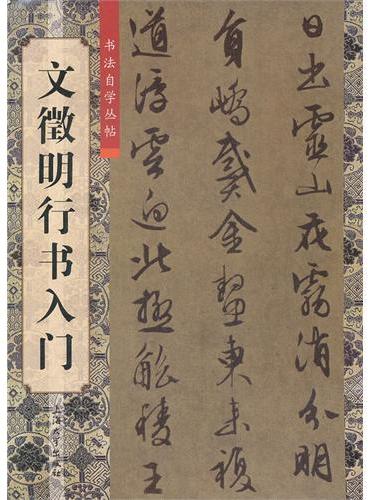 书法自学丛帖
文徵明行书入门
日出靈山花霧消分明
員嶠戴金鰲東来復
道浮雲迥北極觚稜王